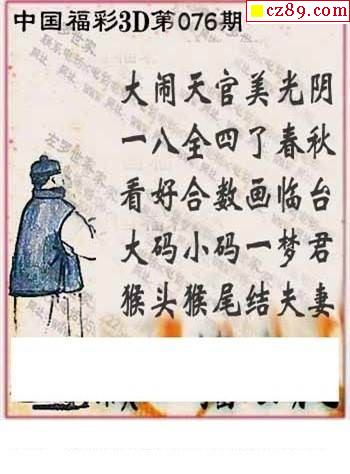 cz89.com
中国福彩3D第076期
大闹天官美光阴
一八全四了春秋
看好合数画临台
大码小码一梦君
猴头猴尾结夫妻